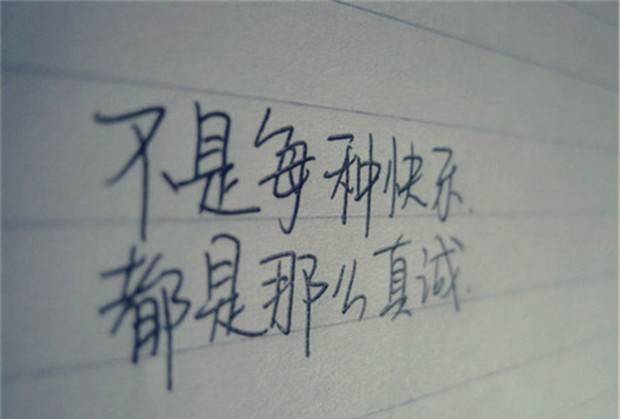 不是每种快乐.
都是那么真诚.